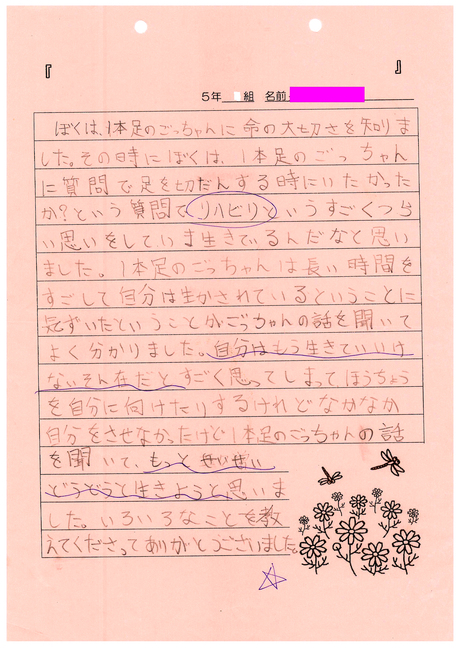 『 』
5年 組 名前
ぼくは、1本足のごっちゃんに命の大切さを知りま
した。その時にぼくは、1本足のごっちゃん
に質問で足を切だんする時にいたかった
か?という質問でリハビリというすごくつら
い思いをして、いま生きているんだなと思い
ました。1本足のごっちゃんは長い時間を
すごして自分は生かされているということに
気ずいたということがごっちゃんの話を聞いて
よく分かりました。自分はもう生きていいけ
ないそんなだとすごく思ってしまって、ほうちょう
を自分に向けたりするけれどなかなか
自分をさせなかったけど1本足のごっちゃんの話
を聞いて、もっとせいぜい
どうどうと生きようと思いま
した。いろいろなことを教
えてくださってありがとうございました。